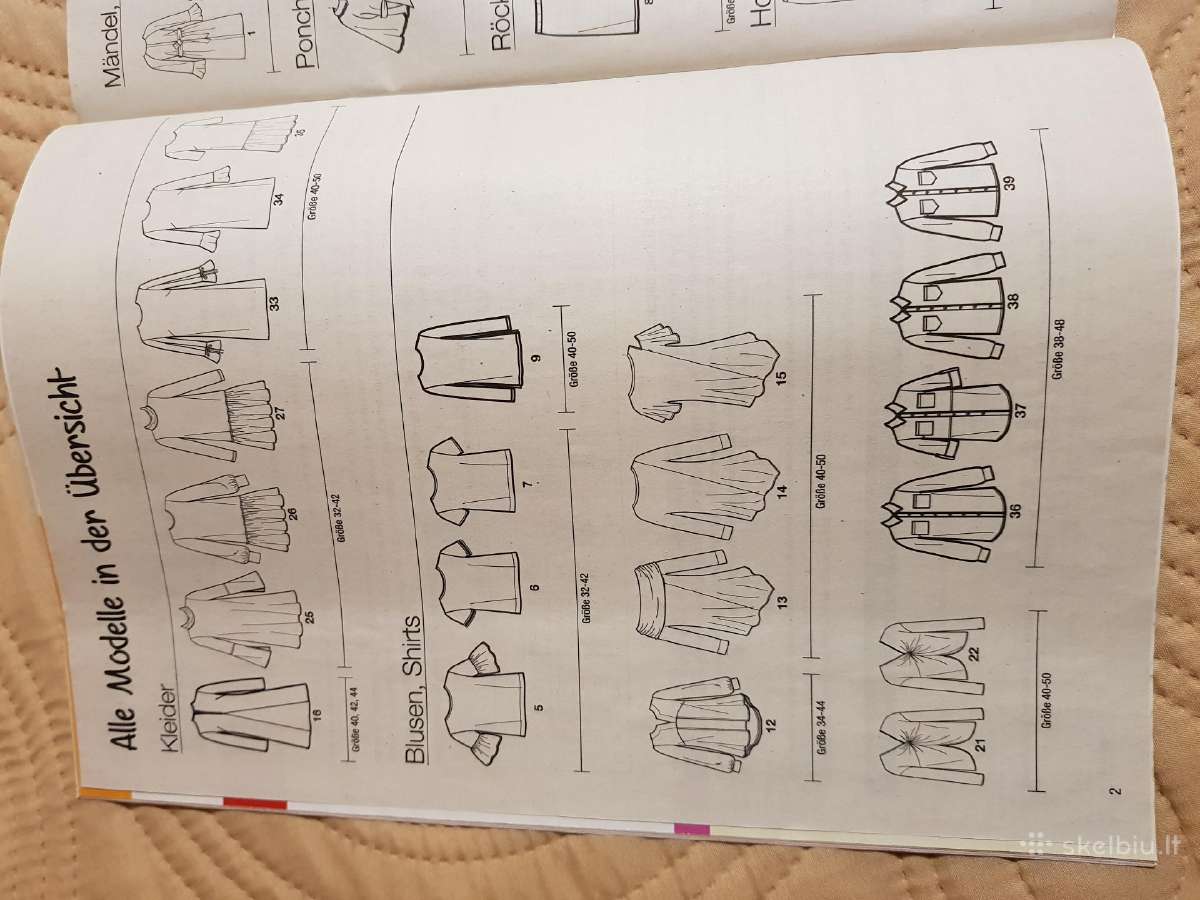 Alle Modelle in der Übersicht
Kleider
16
25
26
27
33
34
35
Größe 40, 42, 44
Größe 32-42
Größe 40-50
Blusen, Shirts
5
6
7
9
Größe 32-42
Größe 40-50
12
13
14
15
Größe 34-44
Größe 40-50
21
22
36
37
38
39
Größe 40-50
Größe 38-48
2
Mändel,
1
Ponch
Röck
8
Größe
Ho
skelbiu.lt